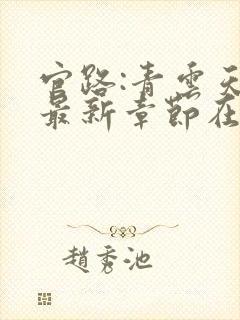 官路:青雲天
最新章節在
趙秀池